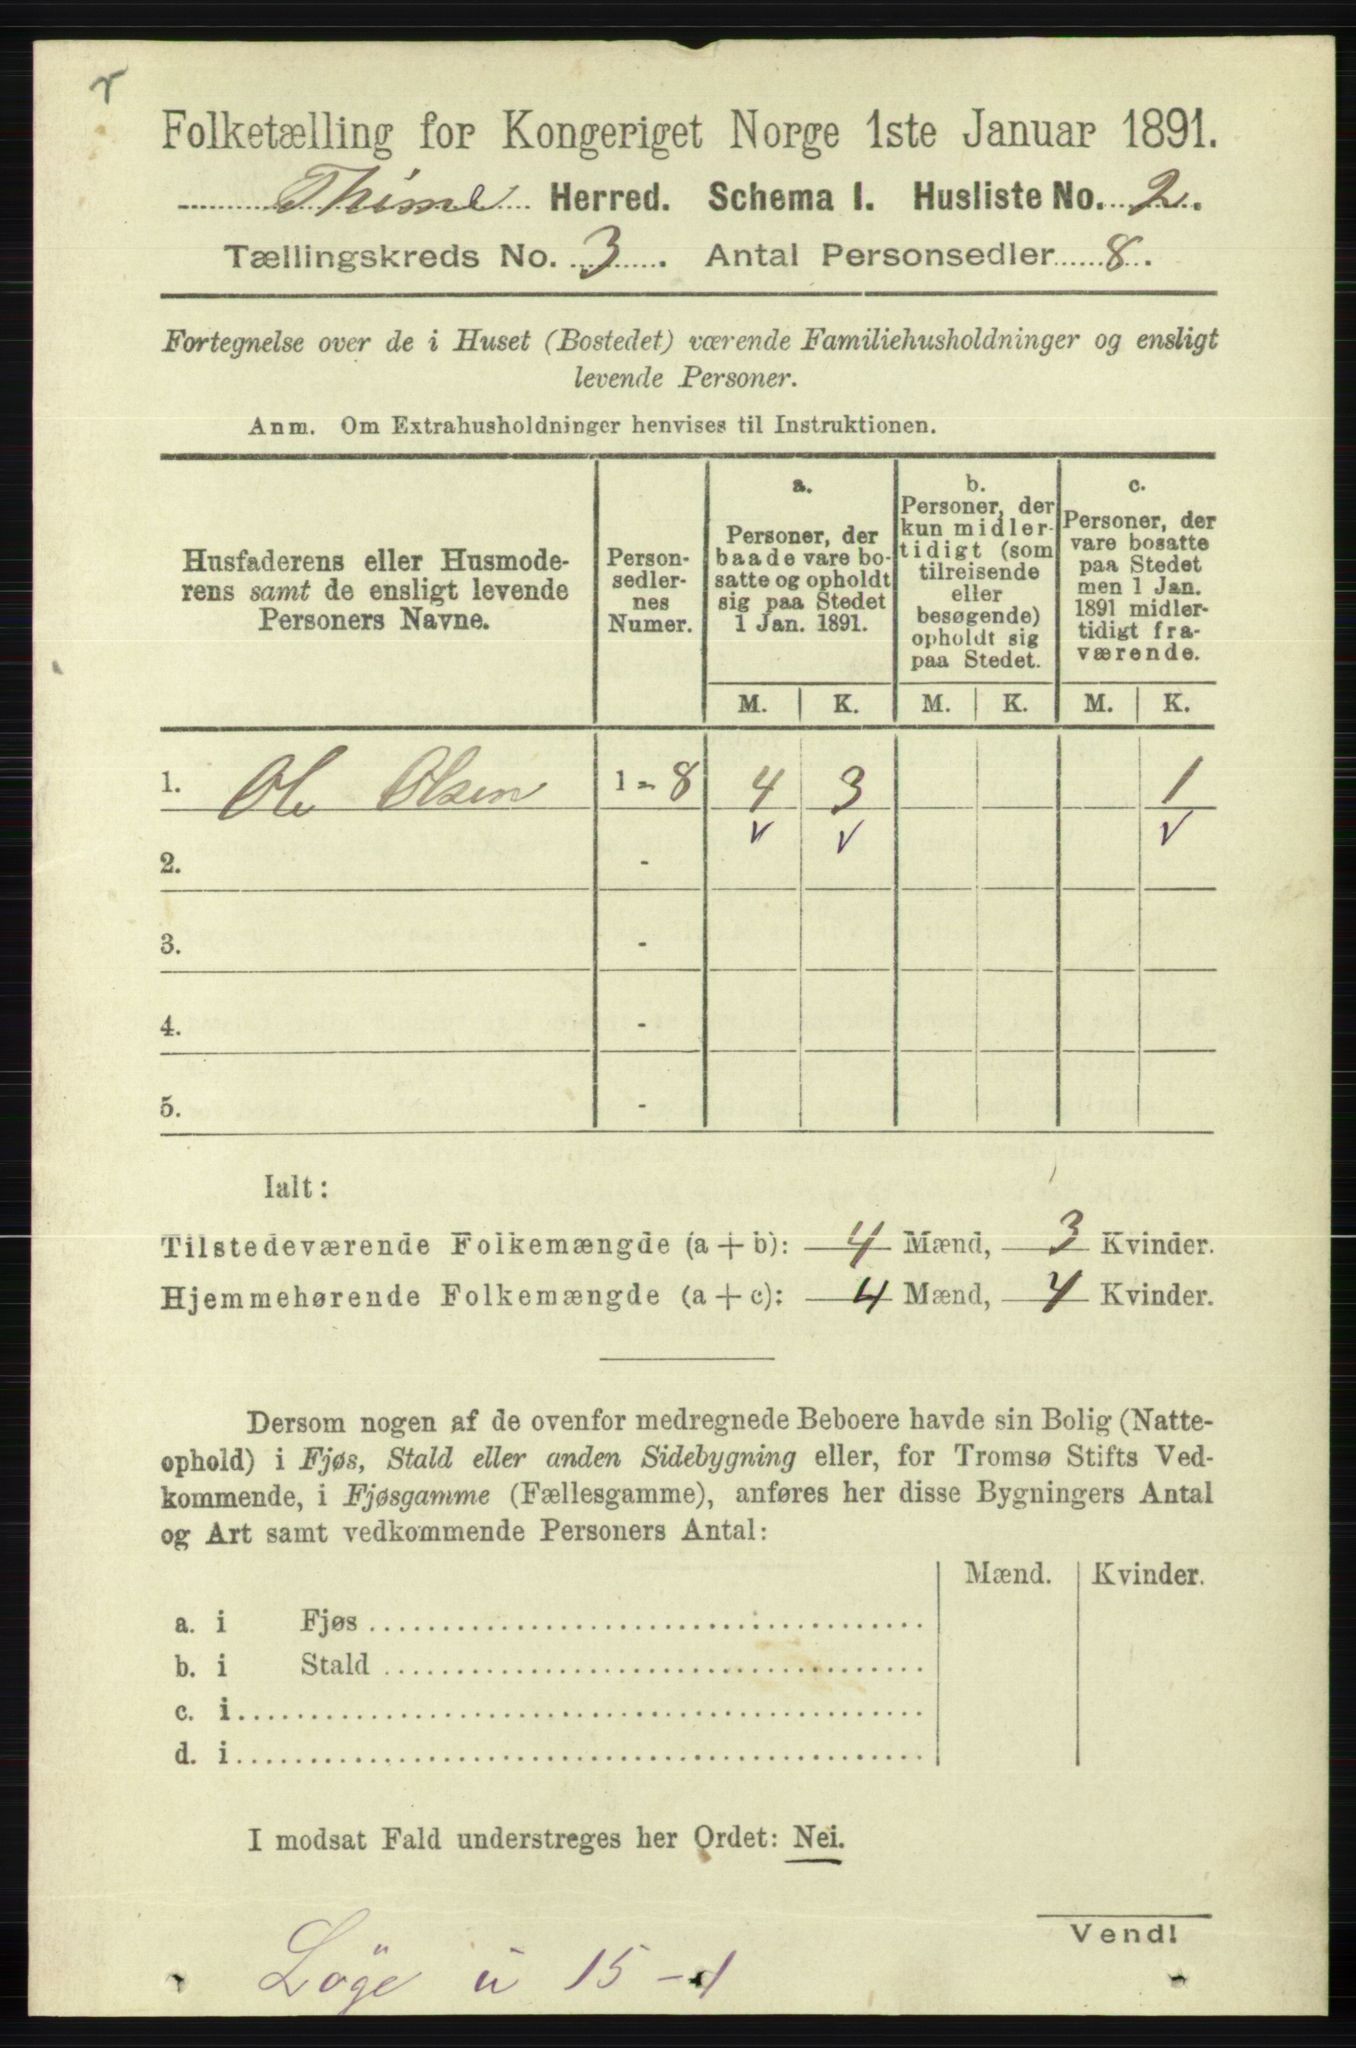 Folketælling for Kongeriget Norge 1ste Januar 1891.
Thime Herred. Schema I. Husliste No. 2.
Tællingskreds No. 3. Antal Personsedler 8.
Fortegnelse over de i Huset (Bostedet) værende Familiehusholdninger og ensligt
levende Personer.
Anm. Om Extrahusholdninger henvises til Instruktionen.
Husfaderens eller Husmode-
rens samt de ensligt levende
Personers Navne.
Person-
sedler-
nes
Numer.
a.
Personer, der
baade vare bo-
satte og opholdt
sig paa Stedet
1 Jan. 1891.
b.
Personer, der
kun midler-
tidigt (som
tilreisende
eller
besøgende)
opholdt sig
paa Stedet.
c.
Personer, der
vare bosatte
paa Stedet
men 1 Jan.
1891 midler-
tidigt fra-
værende.
M. K. M. K. M. K.
1. Ole Olsen 1 - 8 4 3 1
2. -
3. -
4. -
5. -
Ialt:
Tilstedeværende Folkemængde (a + b): 4 Mænd, 3 Kvinder.
Hjemmehørende Folkemængde (a + c): 4 Mænd, 4 Kvinder.
Dersom nogen af de ovenfor medregnede Beboere havde sin Bolig (Natte-
ophold) i Fjøs, Stald eller anden Sidebygning eller, for Tromsø Stifts Ved-
kommende, i Fjøsgamme (Fællesgamme), anføres her disse Bygningers Antal
og Art samt vedkommende Personers Antal:
Mænd. Kvinder.
a. i Fjøs
b. i Stald
c. i
d. i
I modsat Fald understreges her Ordet: Nei.
Vend!
Löge u 15 - 1